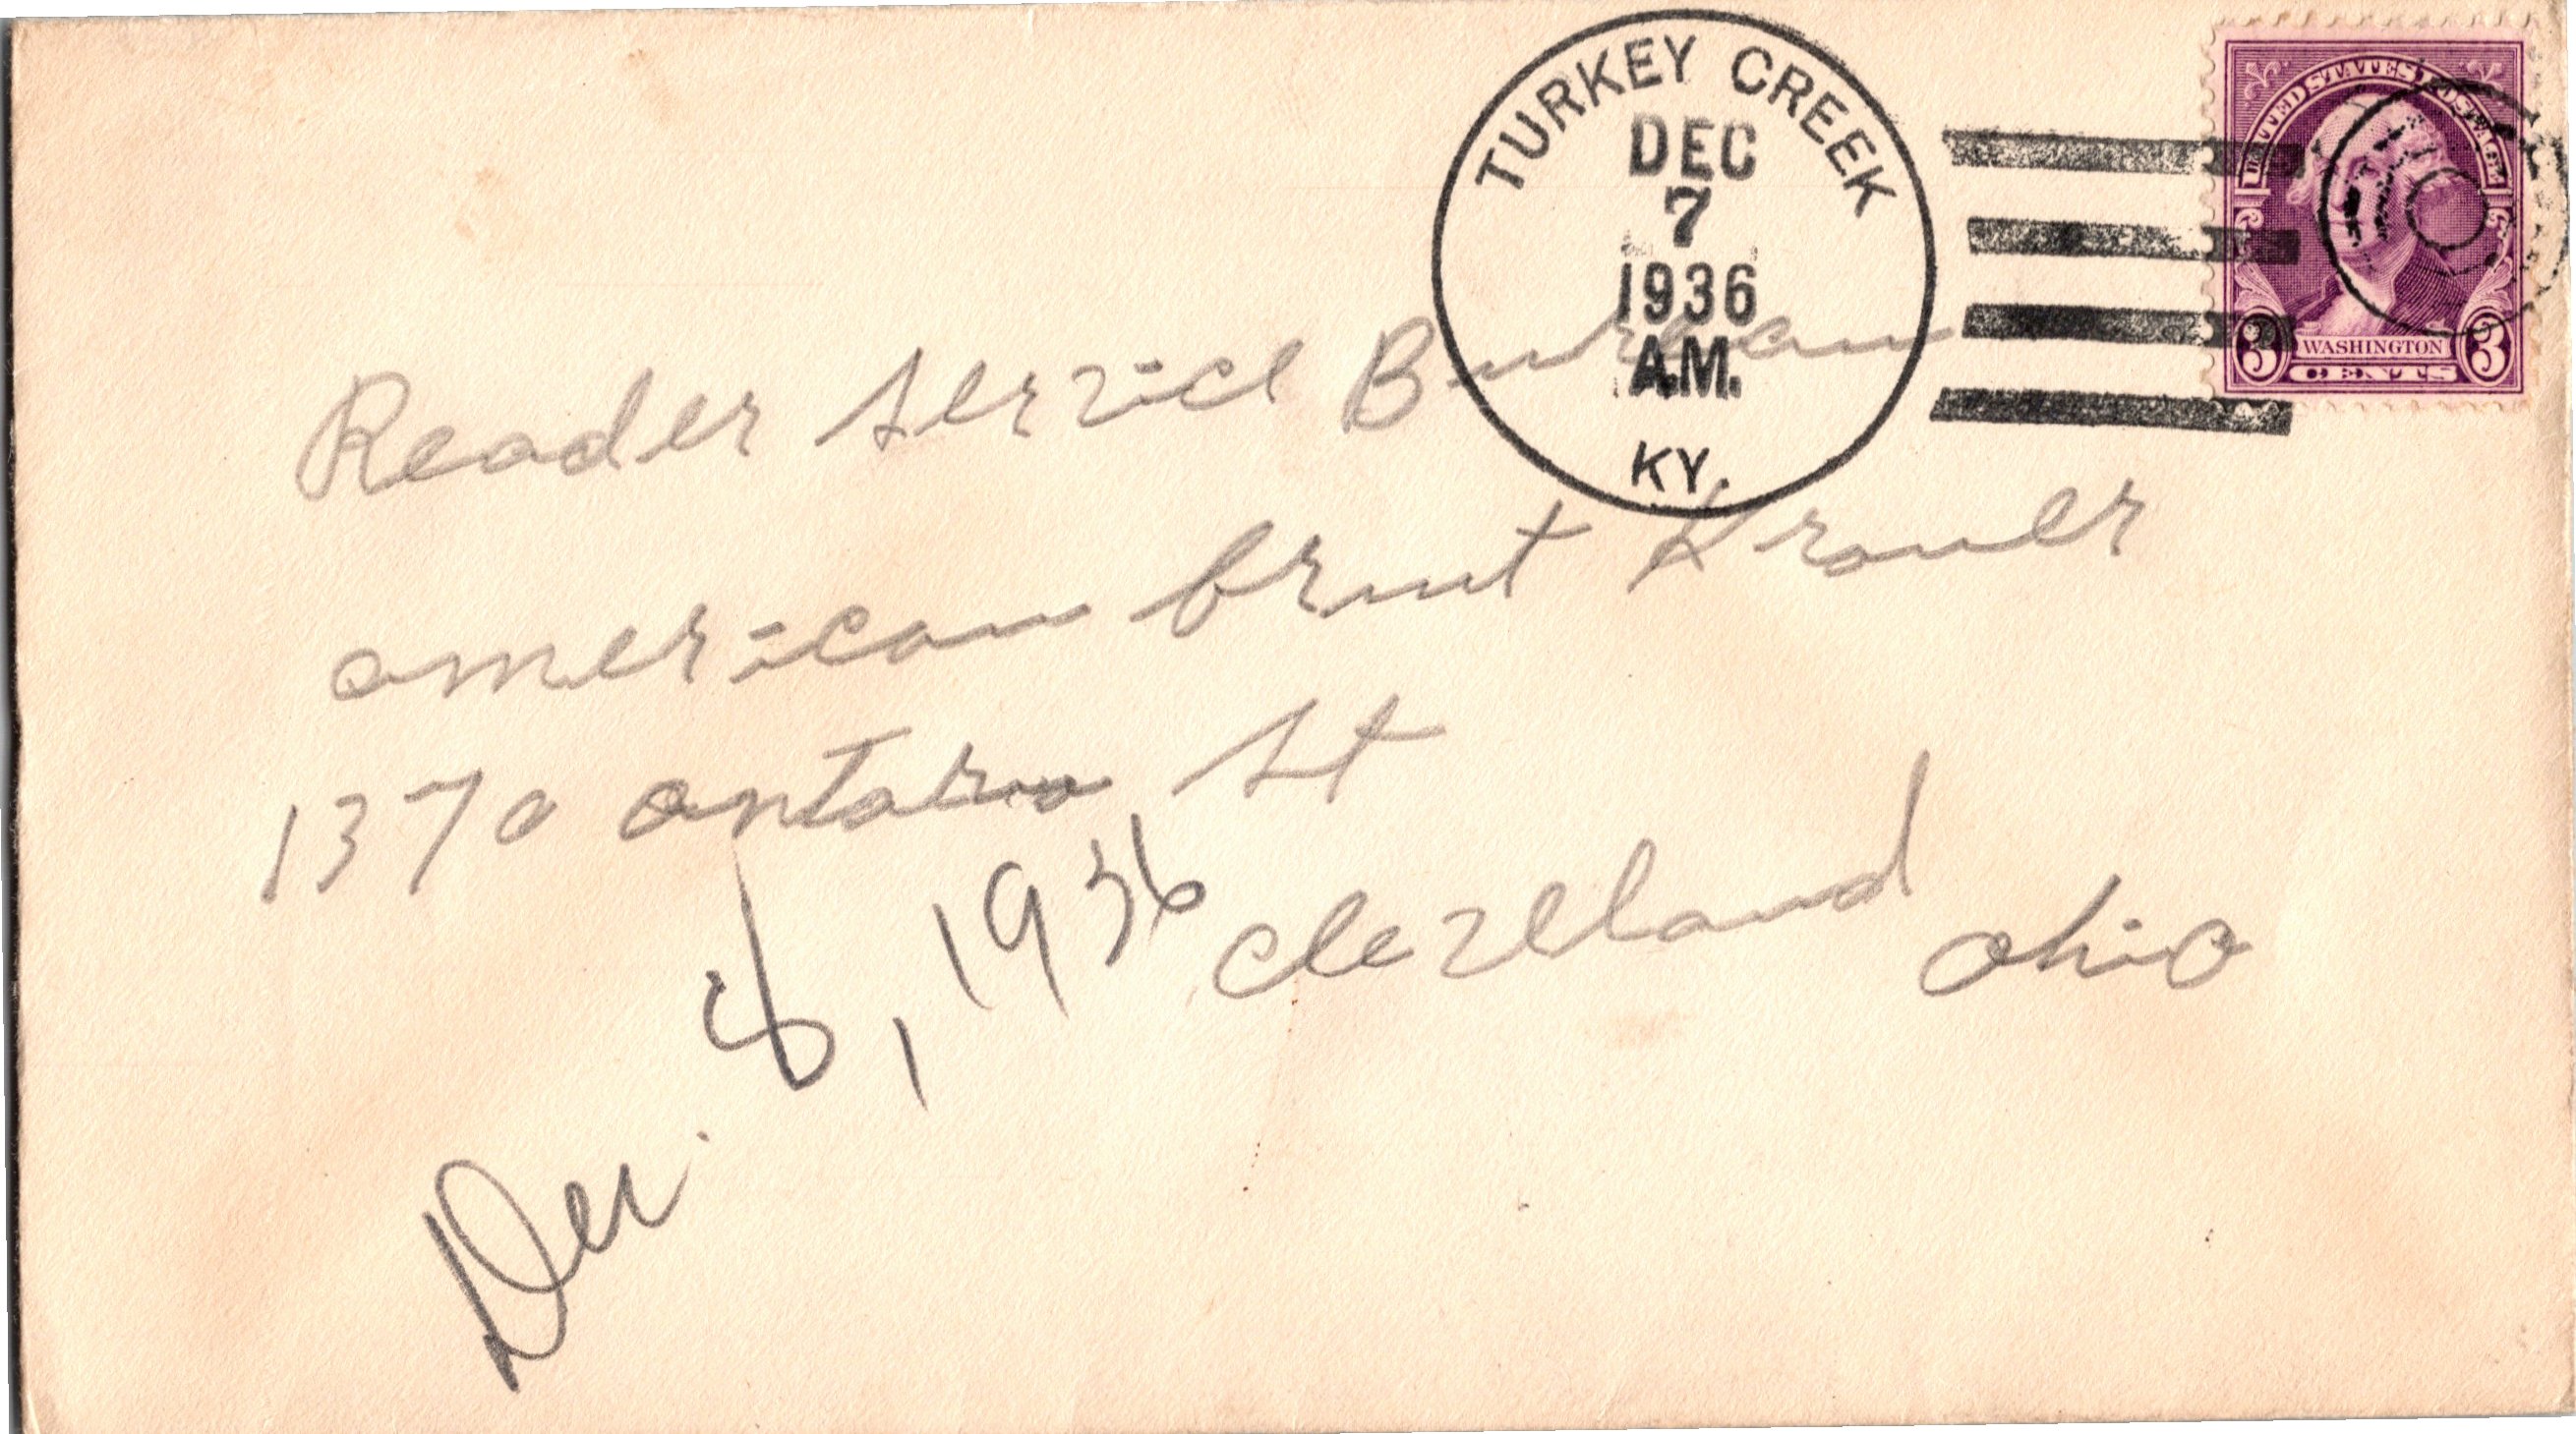 TURKEY CREEK
DEC
7
1936
A.M.
KY.
UNITED STATES POSTAGE
3 WASHINGTON 3
CENTS
Reader Service Bureau
american Fruit Grower
1370 Ontario St
Cleveland Ohio
Dec. 8, 1936